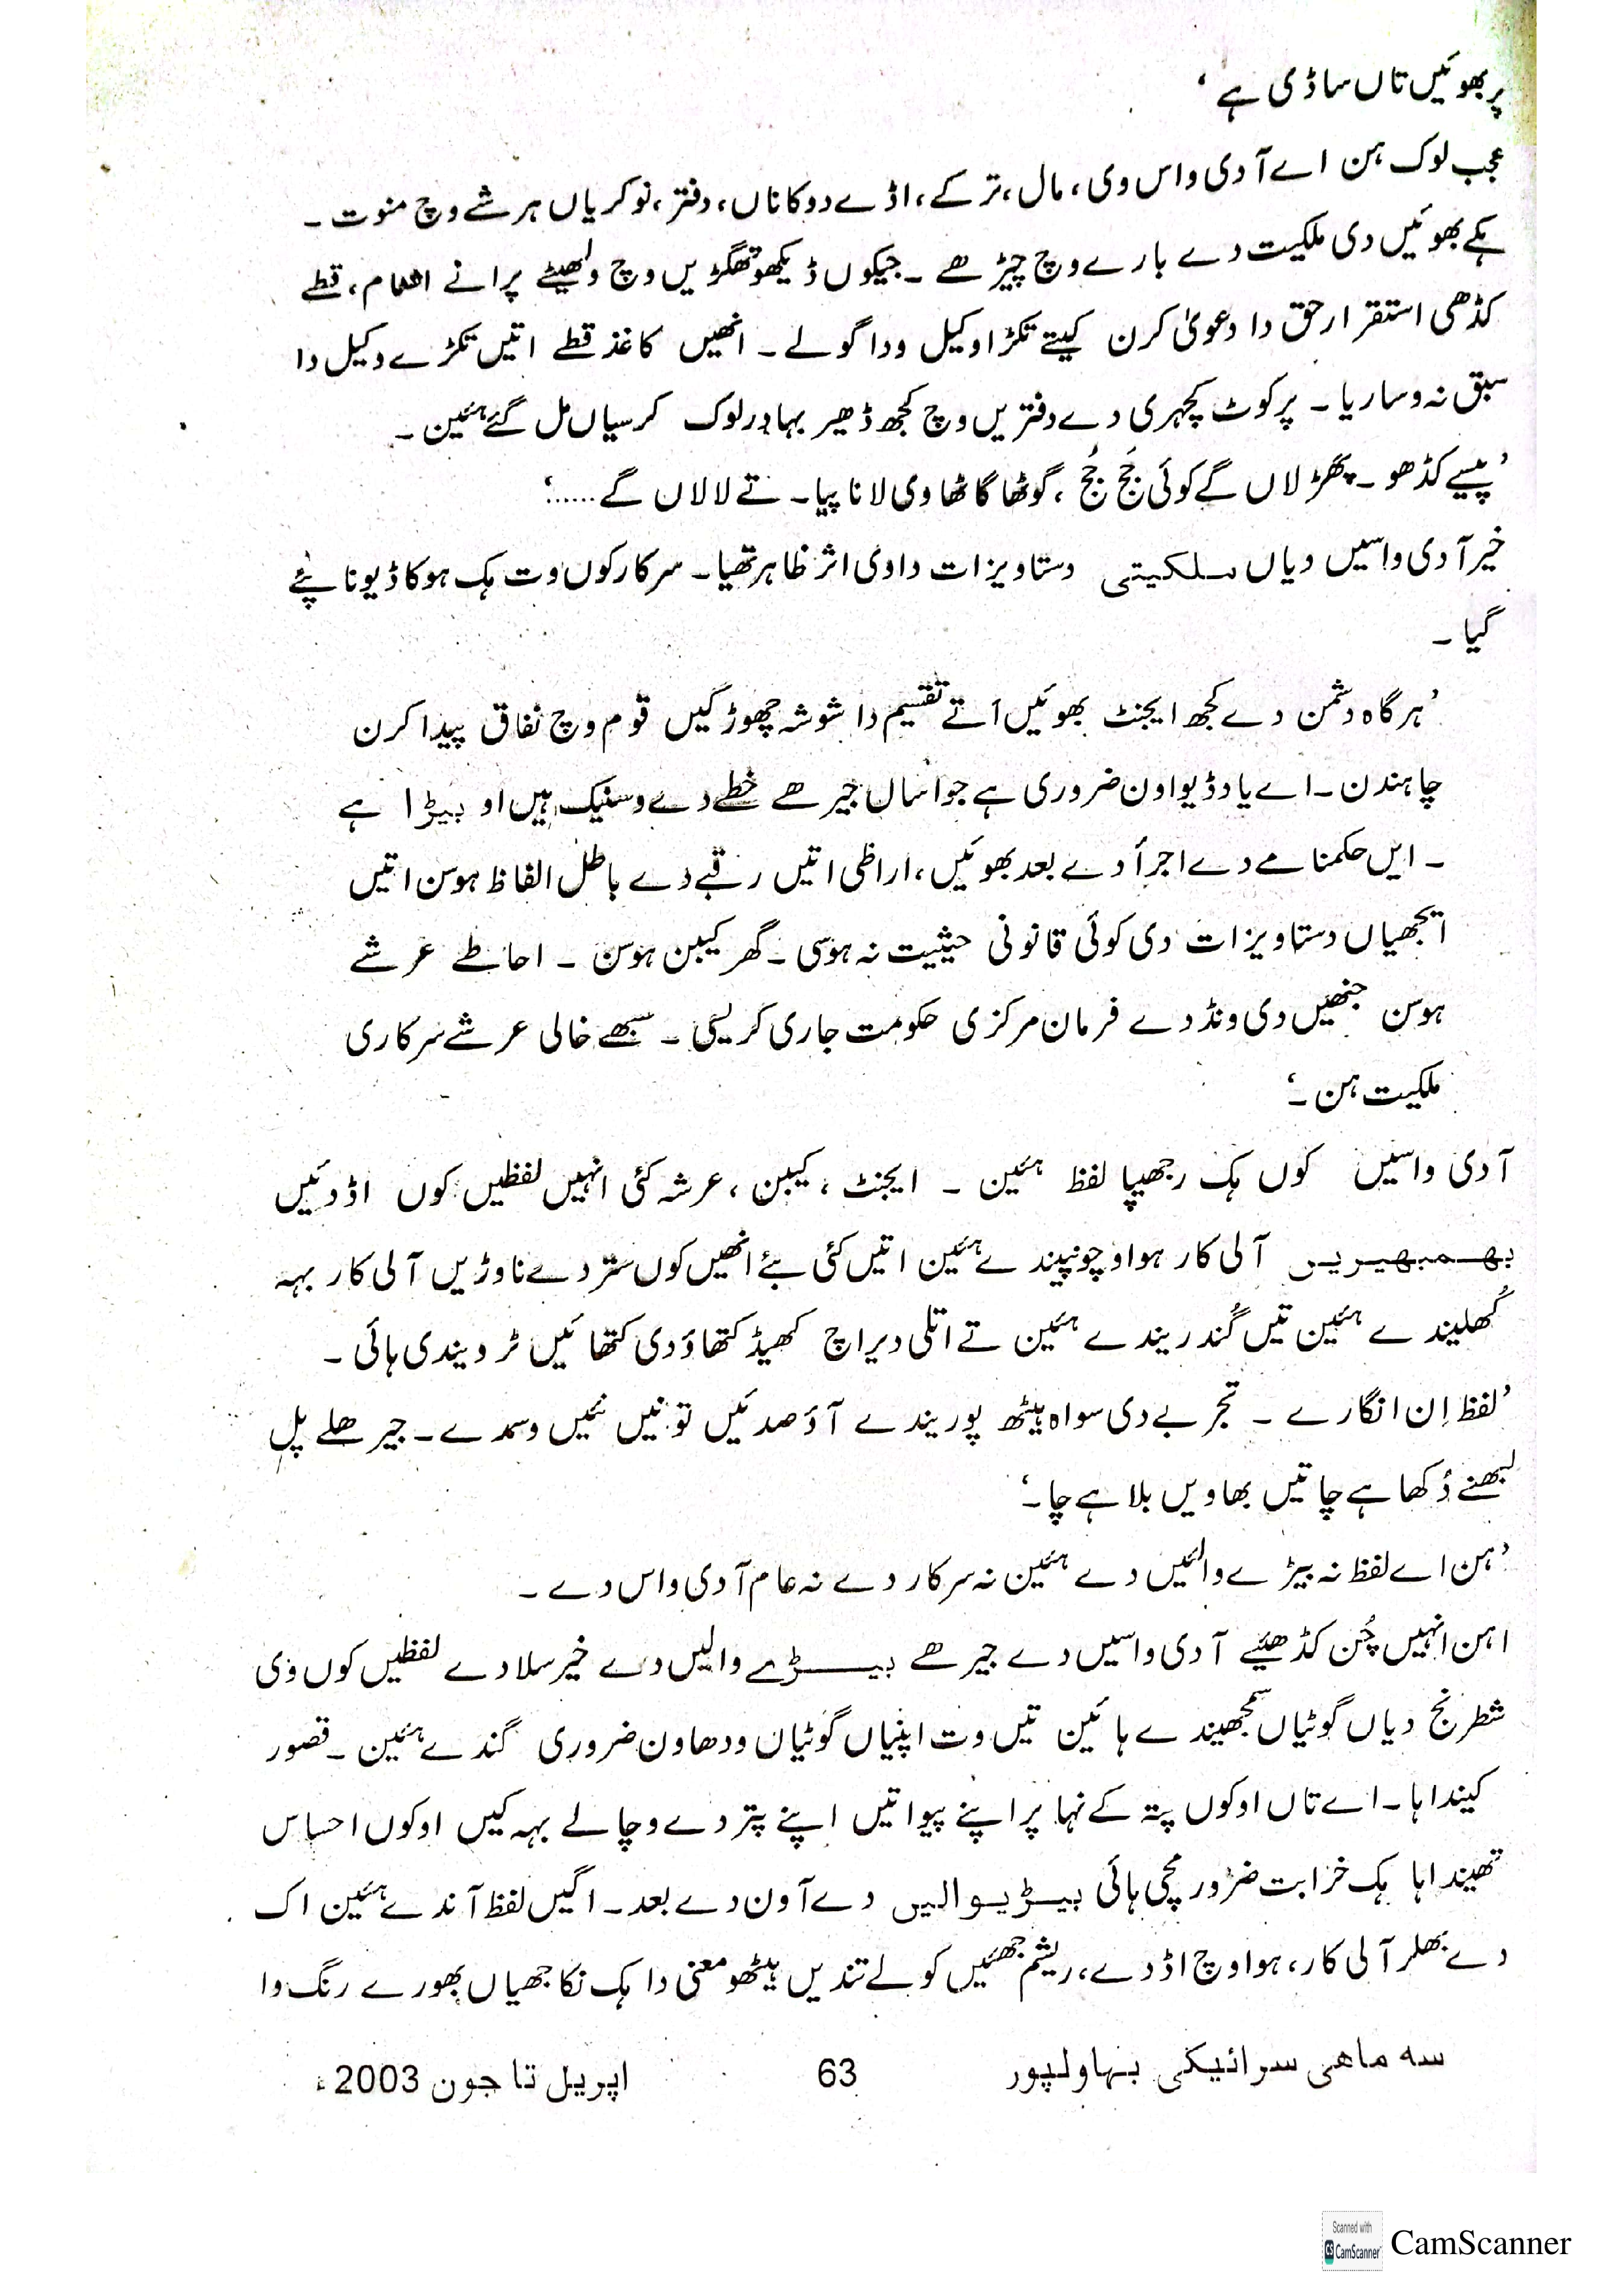 پر بھوئیں تاں ساڈی ہے‘
عجب لوک ہن اے آدی واس وی، مال، ترکے، اڈے دوکاناں، دفتر، نوکریاں ہر شے وچ منوت۔
ہکے بھوئیں دی ملکیت دے بارے وچ چیڑھے۔ جیکوں ڈیکھو تھگڑیں وچ ولھیٹے پرانے اشٹام، قطے
کڈھی استقرار حق دا دعویٰ کرن کیتے تکڑا وکیل ودا گولے۔ انھیں کاغذ قطے اتیں تکڑے وکیل دا
سبق نہ وساریا۔ پر کوٹ کچہری دے دفتریں وچ کجھ ڈھیر بہادر لوک کرسیاں مل گئے ہئین۔
’پیسے کڈھو۔ پھڑ لاں گے کوئی جَج جُج، گوٹھا گاٹھا وی لانا پیا۔ تے لا لاں گے.....‘
خیر آدی واسیں دیاں ملکیتی دستاویزات دا وی اثر ظاہر تھیا۔ سرکار کوں وت ہک ہوکا ڈیونا پئے
گیا۔
’ہرگاہ دشمن دے کجھ ایجنٹ بھوئیں اتے تقسیم دا شوشہ چھوڑ گیں قوم وچ نفاق پیدا کرن
چاہندن۔ اے یاد ڈیواون ضروری ہے جو اساں جیرھے خطے دے وسنیک ہیں او بیڑا ہے
۔ ایں حکمنامے دے اجرأ دے بعد بھوئیں، اراضی اتیں رقبے دے باطل الفاظ ہوسن اتیں
اتجھیاں دستاویزات دی کوئی قانونی حیثیت نہ ہوسی۔ گھر کیبن ہوسن۔ احاطے عرشے
ہوسن جنھیں دی ونڈ دے فرمان مرکزی حکومت جاری کریسی۔ سبھے خالی عرشے سرکاری
ملکیت ہن۔‘
آدی واسیں کوں ہک رجھیپا لفظ ہئین۔ ایجنٹ، کیبن، عرشہ کئی انہیں لفظیں کوں اڈدئیں
بھمبھیریں آلی کار ہوا وچو نپیندے ہئین اتیں کئی بئے انھیں کوں ستر دے ناوڑیں آلی کار بہہ
کُھلیندے ہئین تیں گُندریندے ہئین تے اتلی دیر اچ کھیڈ کتھاؤ دی کتھائیں ٹر ویندی ہائی۔
’لفظ اِن انگارے۔ تجربے دی سواہ ہیٹھ پوریندے آؤ صدئیں توئیں نئیں وسمدے۔ جیرھلے پل
لبھنے دُکھا ہے چا تیں بھاویں بلا ہے چا۔‘
’ہن اے لفظ نہ بیڑے والئیں دے ہئین نہ سرکار دے نہ عام آدی واس دے۔
اہن انہیں چُن کڈھیے آدی واسیں دے جیرھے بیڑے والیں دے خیر سلا دے لفظیں کوں وی
شطرنج دیاں گوٹیاں سمجھیندے ہائین تیں وت اپنیاں گوٹیاں ودھاون ضروری گندے ہئین۔ قصور
کیندا ہا۔ اے تاں اوکوں پتہ کے نہا پر اپنے پیو اتیں اپنے پتر دے وچالے بہہ کیں اوکوں احساس
تھیندا ہا ہک خرابت ضرور مچی ہائی بیڑیوالیں دے آون دے بعد۔ اگیں لفظ آندے ہئین اک
دے بھلر آلی کار، ہوا وچ اڈدے، ریشم جھئیں کولے تندیں ہیٹھو معنی دا ہک نکا جھیاں بھورے رنگ دا
سہ ماہی سرائیکی بہاولپور 63 اپریل تا جون 2003ء
Scanned with
CS CamScanner
CamScanner